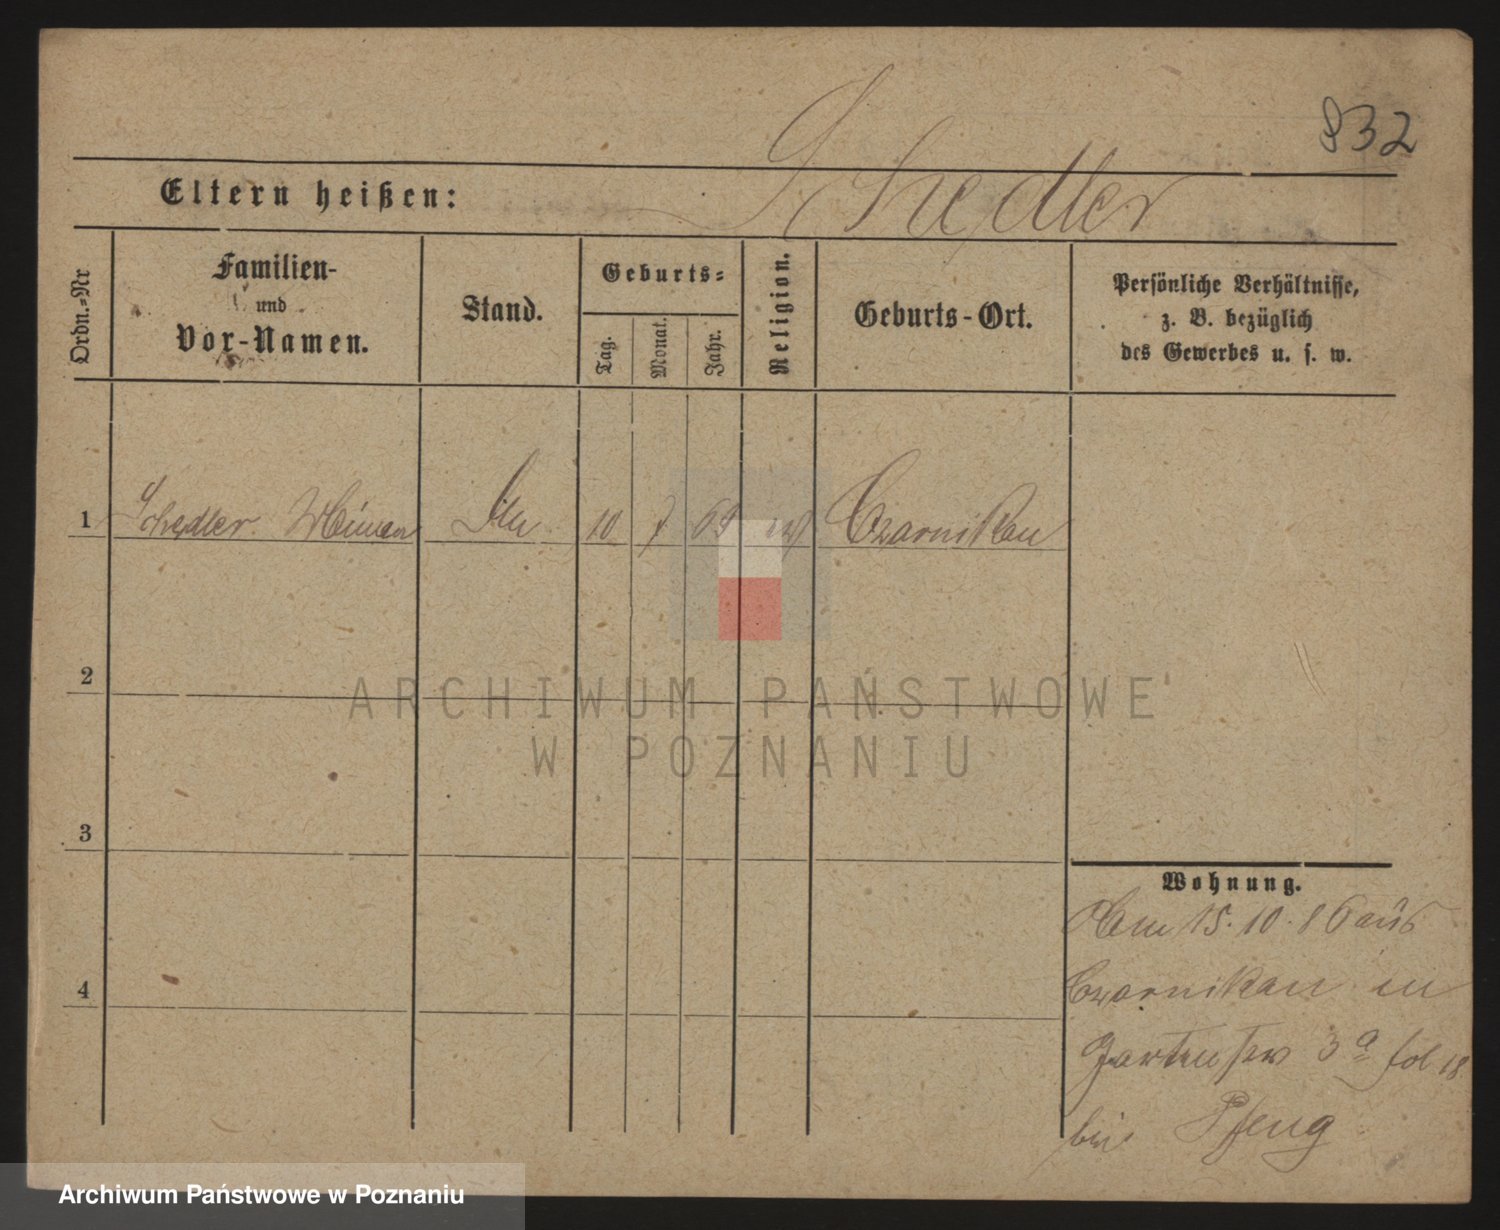 832
Schedler
Eltern heißen:
Ordn.=Nr
Familien-
und
Vor-Namen.
Stand.
Geburts=
Tag.
Monat.
Jahr.
Religion.
Geburts-Ort.
Persönliche Verhältnisse,
z. B. bezüglich
des Gewerbes u. s. w.
1 Schedler 10 7 69 Czarnikau
2
3
4
Wohnung.
Am 15.10.86 aus
Czarnikau in
Gartenstr 3a fol 18
bei
ARCHIWUM PAŃSTWOWE
W POZNANIU
Archiwum Państwowe w Poznaniu